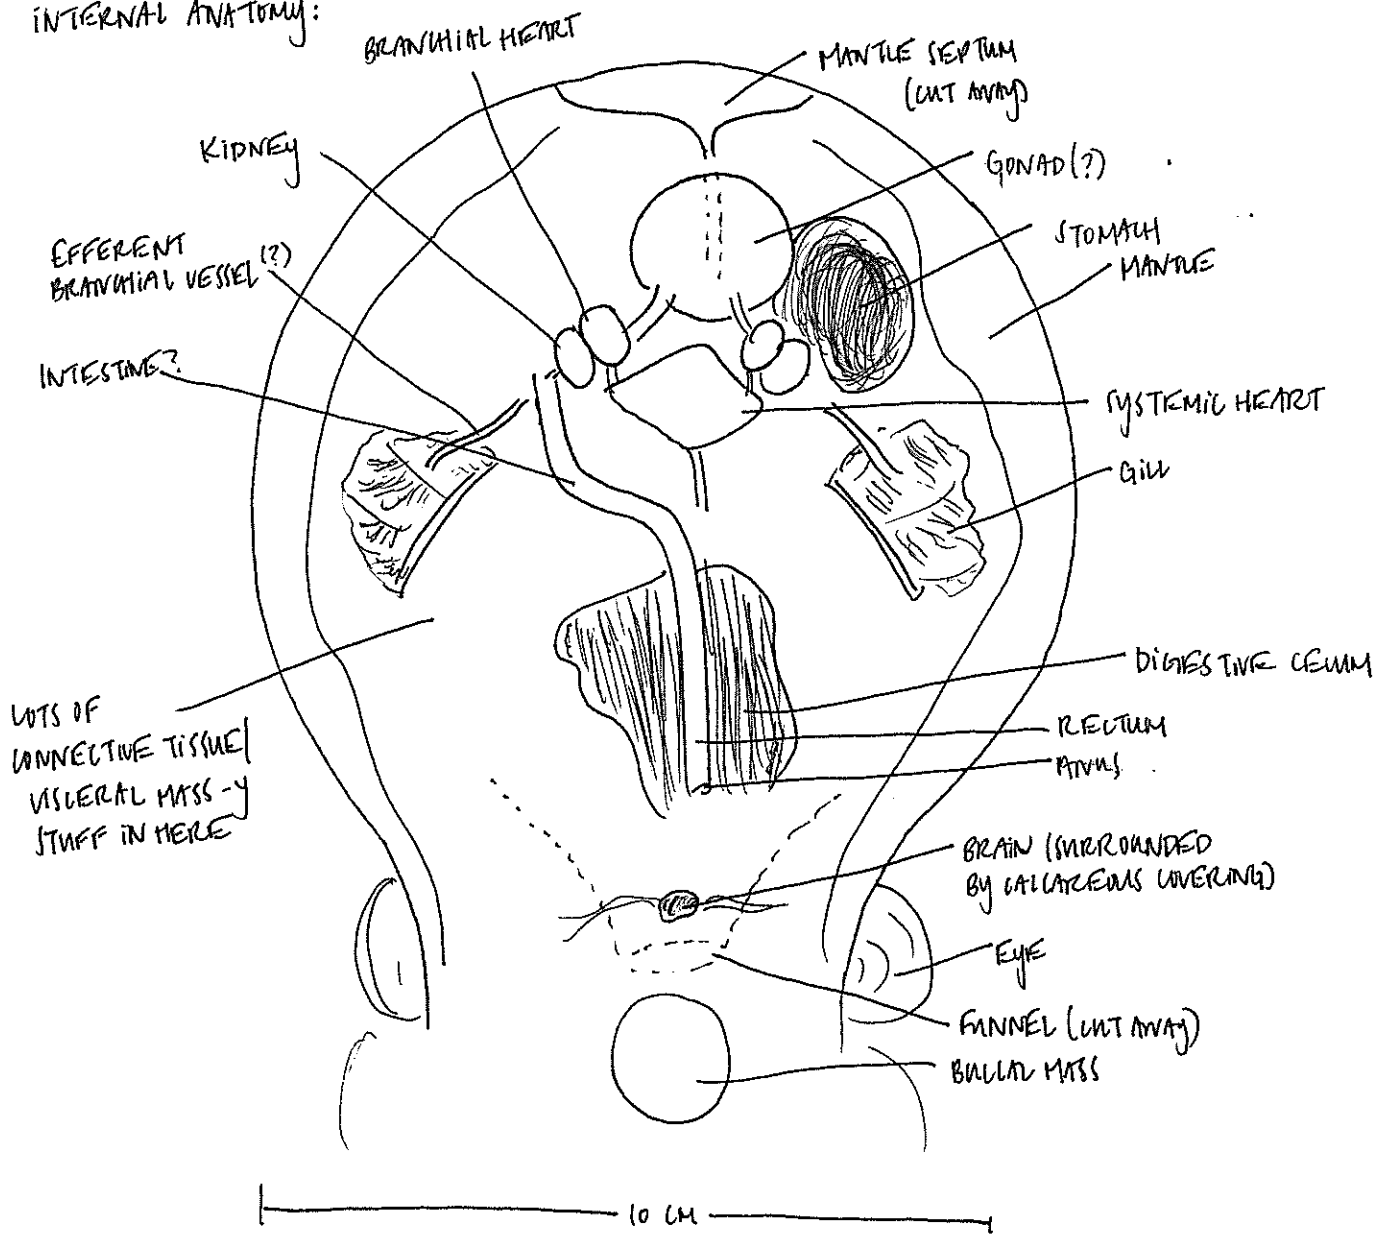 INTERNAL ANATOMY:
BRANCHIAL HEART
MANTLE SEPTUM
(CUT AWAY)
KIDNEY
GONAD(?)
EFFERENT
BRANCHIAL VESSEL(?)
STOMACH
MANTLE
INTESTINE?
SYSTEMIC HEART
GILL
DIGESTIVE CECUM
LOTS OF
CONNECTIVE TISSUE/
VISCERAL MASS-Y
STUFF IN HERE
RECTUM
ANUS
BRAIN (SURROUNDED
BY CALCAREOUS COVERING)
EYE
FUNNEL (CUT AWAY)
BUCCAL MASS
10 CM